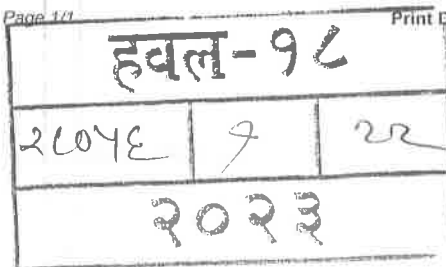 Page 1/1 Print D
हवल-१८
२८०५६ १ २२
२०२३